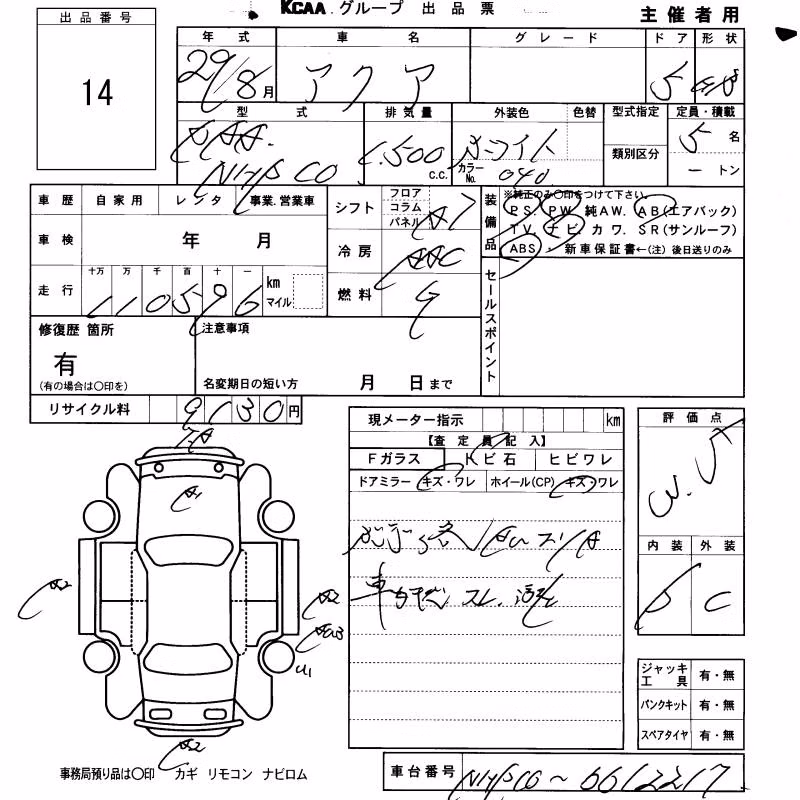 KCAA.グループ 出品票 主催者用
出品番号
14
年式 車名 グレード ドア 形状
29/8月 アクア 5
型式 排気量 外装色 色替 型式指定 定員・積載
DAA. 1.500 c.c. ホワイト カラーNo. 040 類別区分 5名
NHP10 ートン
車歴 自家用 レンタ 事業.営業車
車検 年 月
走行 十万 万 千 百 十 一 km マイル
110596
シフト フロア コラム パネル AT
冷房 AAC
燃料 G
装備品
※純正のみ〇印をつけて下さい。
PS. PW. 純AW. AB(エアバック)
TV. ナビ. カワ. SR(サンルーフ)
ABS ・ 新車保証書←(注) 後日送りのみ
セールスポイント
修復歴 箇所
有
(有の場合は〇印を)
注意事項
名変期日の短い方 月 日まで
リサイクル料 9130円
現メーター指示 km
【査定員記入】
Fガラス トビ石 ヒビワレ
ドアミラー キズ・ワレ ホイール(CP) キズ・ワレ
評価点
内装 外装
C
A1
A2
A2
U1
A2
ジャッキ工具 有・無
パンクキット 有・無
スペアタイヤ 有・無
事務局預り品は〇印 カギ リモコン ナビロム
車台番号 NHP10～6612217